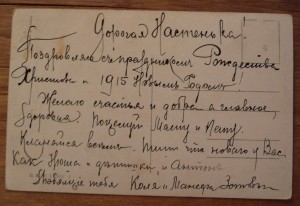 Дорогая Настенька!
Поздравляю с праздником Рождества
Христова и 1915 Новым Годом!
Желаю счастья и добра а главное,
Здоровия. Поцелуй Машу и Петю.
Кланяйся всем. Пиши что новаго у Вас
Как и детишки и
Любящие тебя Коля и